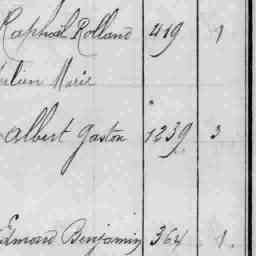 Raphaël Rolland 419 1
Marie
Albert Gaston 1239 3
Edmond Benjamin 364 1.